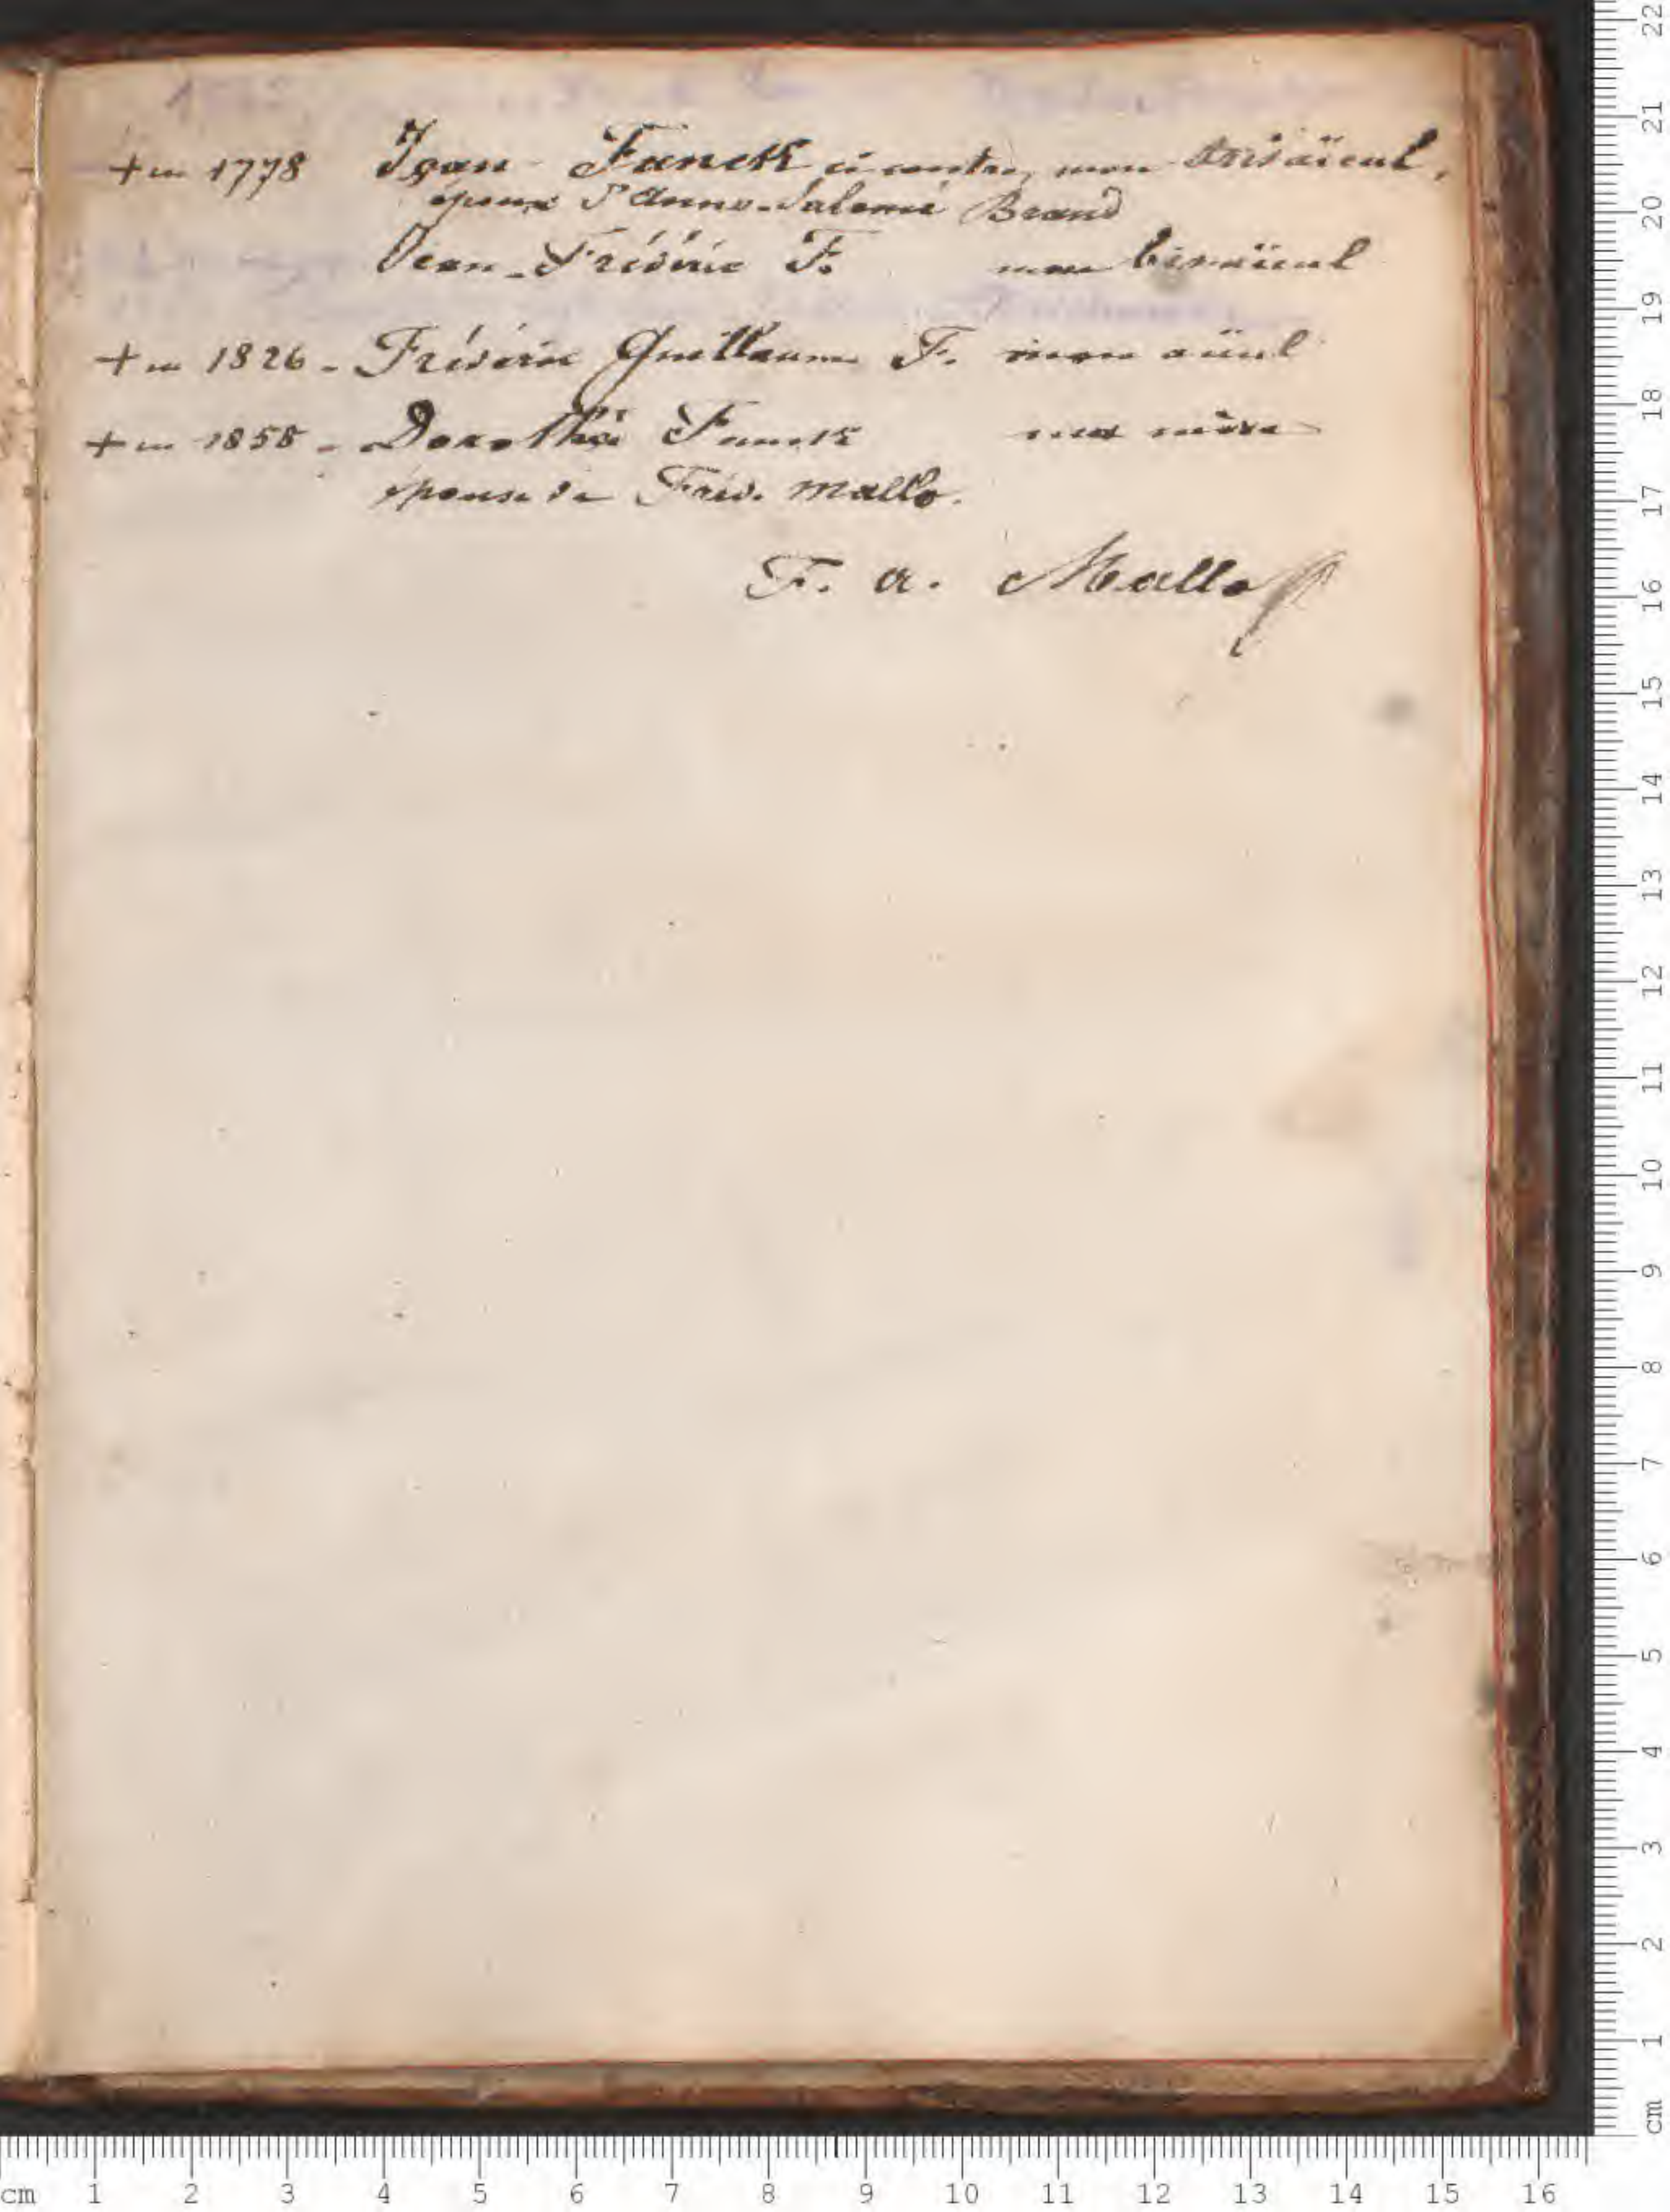 + en 1778 Jean Funck ci contre, mon trisaïeul,
époux d'Anne-Salomé Brand
Jean-Frédéric F. mon bisaïeul
+ en 1826 - Frédéric Guillaume F. mon aïeul
+ en 1858 - Dorothée Funck ma mère
épouse de Fréd. Mallo.
F. A. Mallo